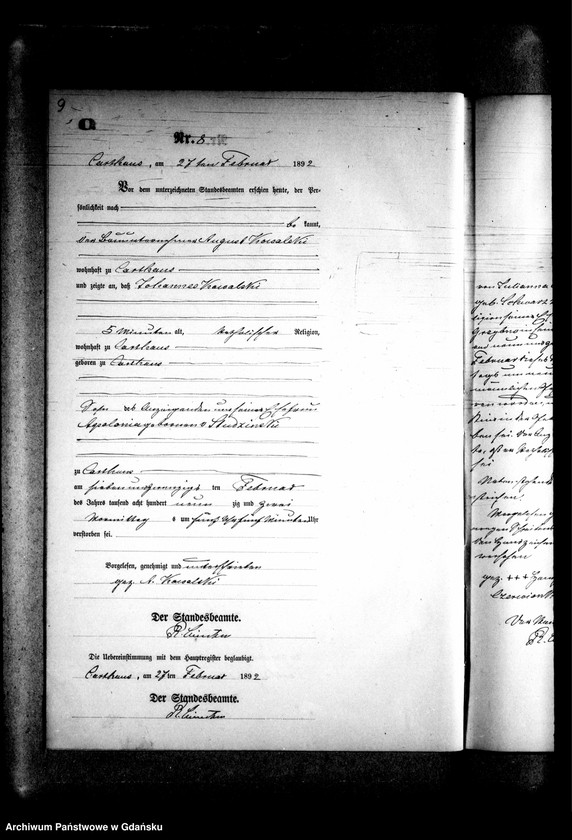 9
Nr. 8
Carthaus, am 27ten Februar 1892
Vor dem unterzeichneten Standesbeamten erschien heute, der Per-
sönlichkeit nach
be kannt,
der Bauunternehmer August Kowalski
wohnhaft zu Carthaus
und zeigte an, daß Johannes Kowalski
5 Minuten alt, katholischer Religion,
wohnhaft zu Carthaus
geboren zu Carthaus
Sohn des Anzeigenden und seiner Ehefrau
Apolonia geborenen Studzinski
zu Carthaus
am siebenundzwanzigsten Februar
des Jahres tausend acht hundert neunzig und zwei
Vormittag s um fünf Uhr fünf Minuten Uhr
verstorben sei.
Vorgelesen, genehmigt und unterschrieben
gez. A. Kowalski
Der Standesbeamte.
Die Uebereinstimmung mit dem Hauptregister beglaubigt.
Carthaus, am 27ten Februar 1892
Der Standesbeamte.
von Julianna
geb. Schwarz
und neun
Februar
sei
gez. +++
Archiwum Państwowe w Gdańsku